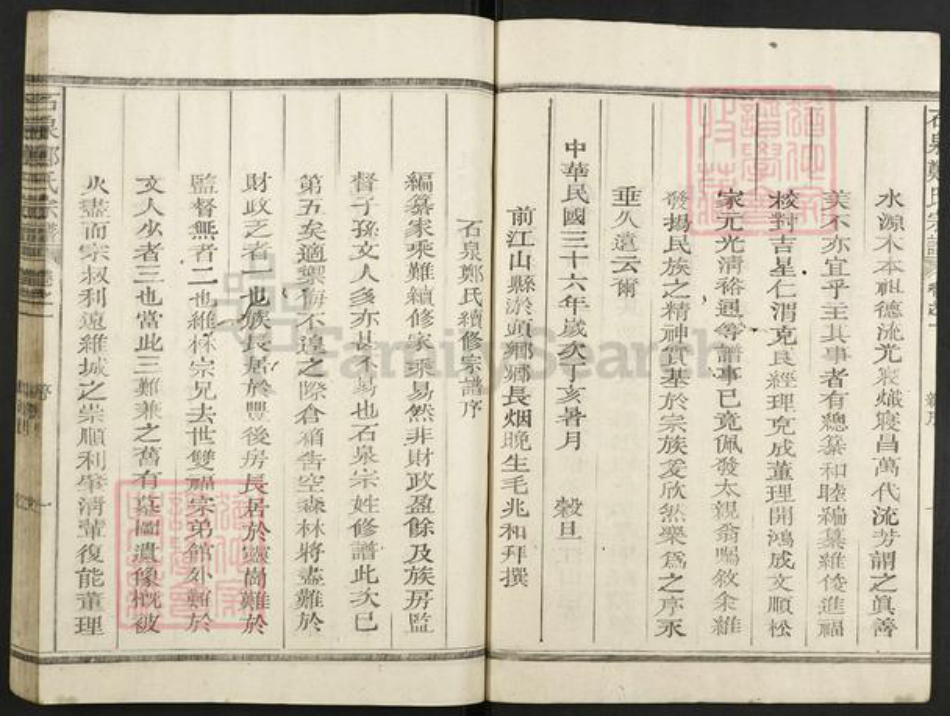 石泉鄭氏宗譜
水源木本祖德流光衆熾寢昌萬代流芳謂之眞善
美不亦宜乎主其事者有總纂和睦編纂維俊進福
校對吉星仁渭克良經理克成董理開鴻成文順松
家元光清裕通等譜事已竟佩發太親翁囑敘余維
發揚民族之精神實基於宗族爰欣然樂爲之序永
垂久遠云爾
中華民國三十六年歲次丁亥暑月 穀旦
前江山縣淤頭鄉鄉長烟晚生毛兆和拜撰
石泉鄭氏續修宗譜序
編纂家乘難續修家乘易然非財政盈餘及族房監
督子孫文人多亦甚不易也石泉宗姓修譜此次已
第五矣適禦侮不遑之際倉箱告空森林將盡難於
財政乏者一也族長居於豐後房長居於靈崗難於
監督無者二也維林宗兄去世雙福宗弟館外難於
文人少者三也當此三難兼之舊有墓圖遺像概被
火盡而宗叔利遠維城之崇順利肇清輩復能董理
石泉鄭氏宗譜
FamilySearch